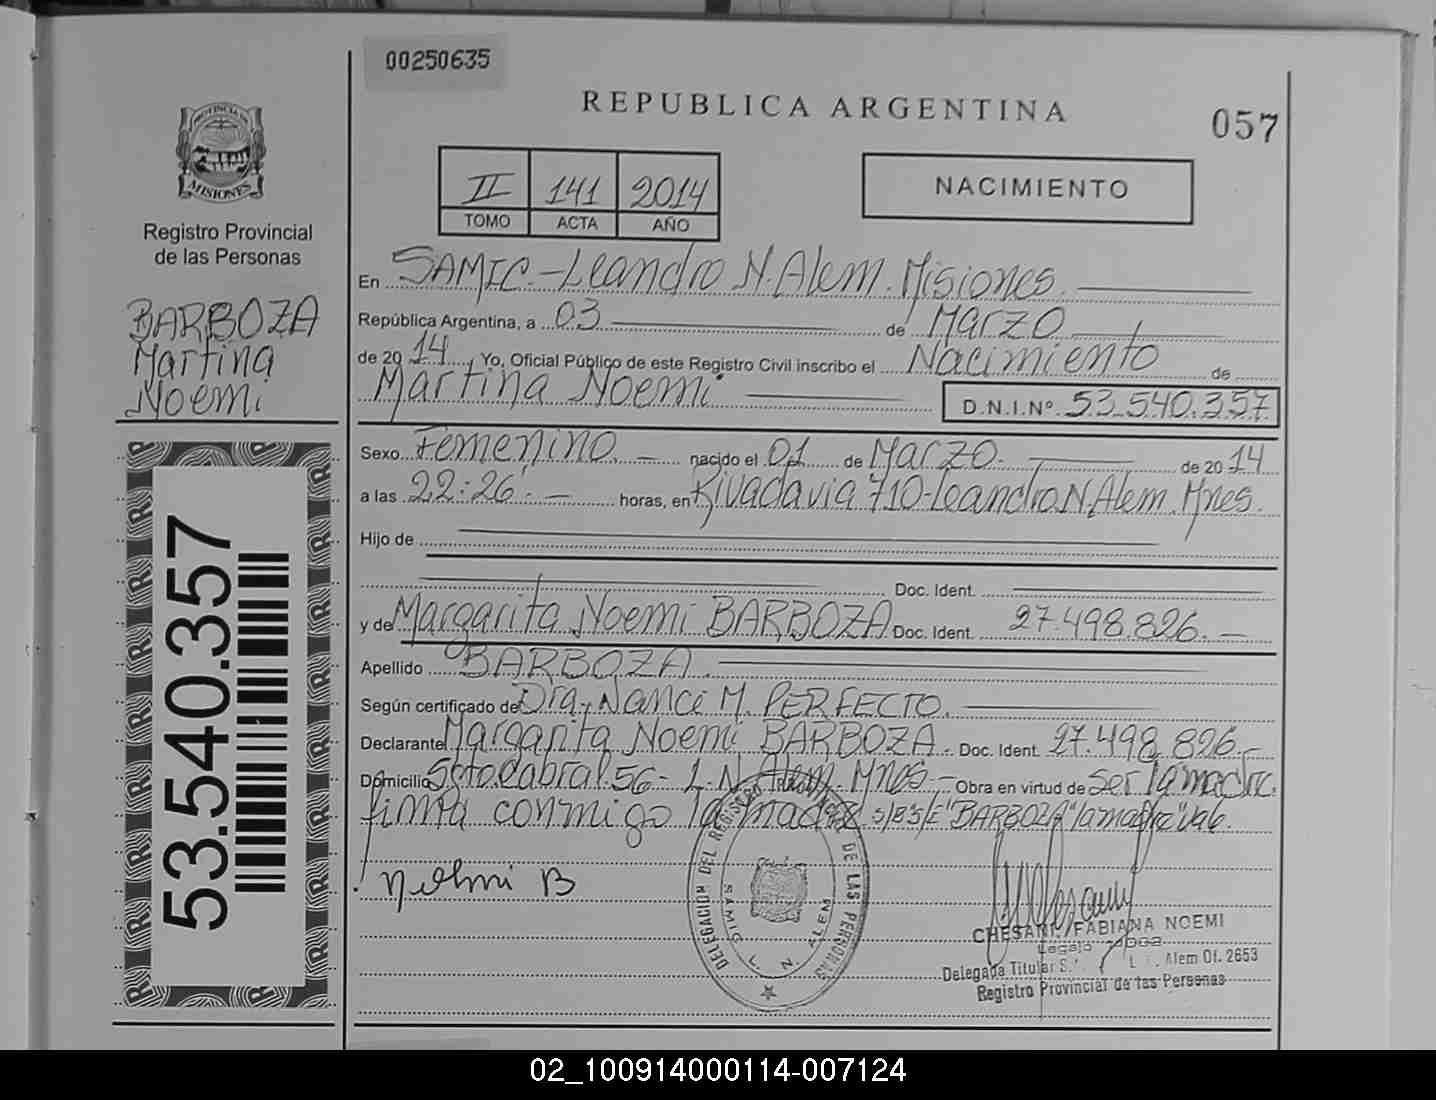 00250635
REPUBLICA ARGENTINA
057
PROVINCIA DE
MISIONES
Registro Provincial
de las Personas
BARBOZA
Martina
Noemi
II 141 2014
TOMO ACTA AÑO
NACIMIENTO
En SAMIC.-Leandro N. Alem. Misiones.
República Argentina, a 03 de Marzo
de 20 14, Yo, Oficial Público de este Registro Civil inscribo el Nacimiento de
Martina Noemi
D.N.I.Nº. 53.540.357
Sexo Femenino. nacido el 01 de Marzo. de 20 14
a las 22:26'. horas, en Rivadavia 710-Leandro N. Alem. Mnes.
Hijo de
Doc. Ident.
y de Margarita Noemi BARBOZA Doc. Ident. 27.498.826.
Apellido BARBOZA.
Según certificado de Dra. Nanci M. PERFECTO.
Declarante Margarita Noemi BARBOZA. Doc. Ident. 27.498.826.
Domicilio Sgto Cabral. 56- L.N. Alem. Mnes. Obra en virtud de ser la madre.
firma conmigo la madre s/B S/E "BARBOZA" la madre" Vale.
Noemi B
DELEGACION DEL REGISTRO PROVINCIAL DE LAS PERSONAS
SAMIC L. N. ALEM
CHESANI, FABIANA NOEMI
Legajo
Delegada Titular L. Alem Of. 2653
Registro Provincial de las Personas
53.540.357
02_100914000114-007124